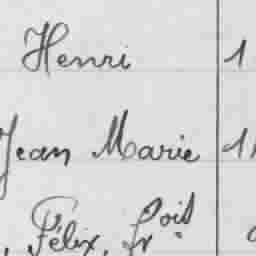 Henri 1
Jean Marie 11
, Félix, frçois